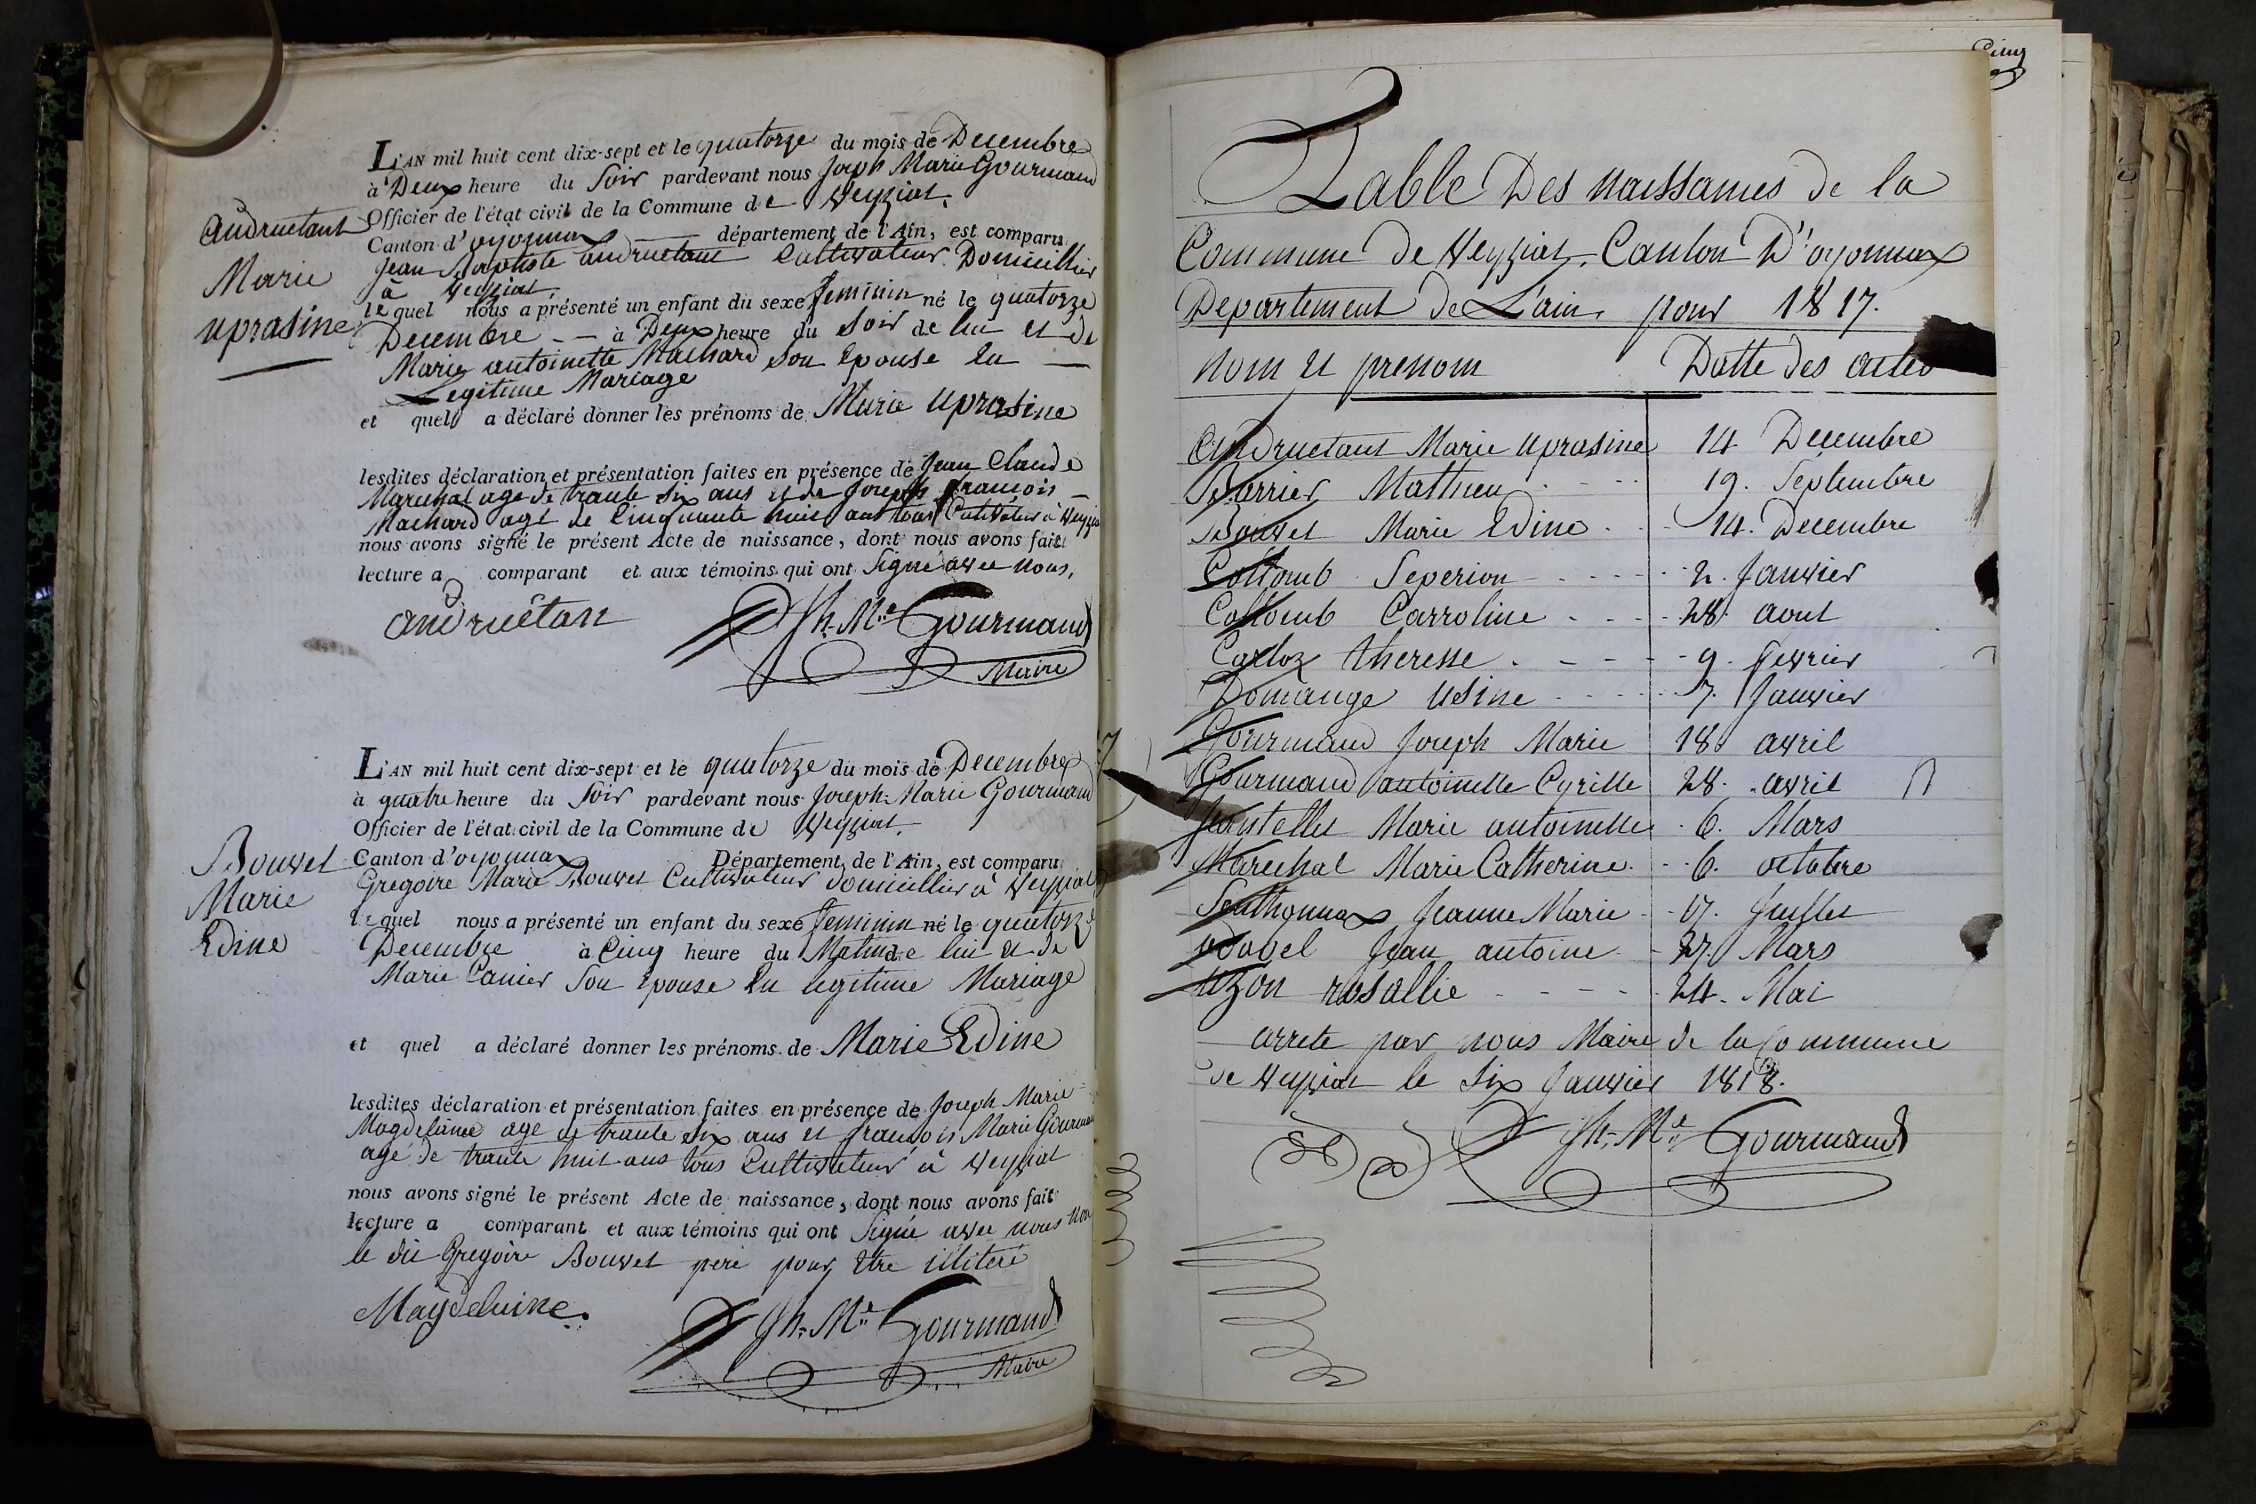 L'AN mil huit cent dix-sept et le quatorze du mois de Decembre
à Deux heure du Soir pardevant nous Joseph Marie Gourmand
Officier de l'état civil de la Commune de Veyziat,
Canton d'oyonnax département de l'Ain, est comparu
Jean Baptiste andruetant Cultivateur Domicillier
à Veyziat
lequel nous a présenté un enfant du sexe feminin né le quatorze
Decembre - - à Deux heure du Soir de lui et de
Marie antoinette Machard son Epouse En
Legitime Mariage
et quel a déclaré donner les prénoms de Marie uprasine
Andruetant
Marie
uprasine
lesdites déclaration et présentation faites en présence de Jean Claude
Marechal age de trante six ans et de Joseph françois
Machard age de Cinquante huit ans tous Cultivateur à Veyziat
nous avons signé le présent Acte de naissance, dont nous avons fait
lecture a comparant et aux témoins qui ont Signé avec nous,
andruétan Jh. Mie Gourmand
Maire
L'AN mil huit cent dix-sept et le quatorze du mois de Decembre
à quatre heure du Soir pardevant nous Joseph Marie Gourmand
Officier de l'état civil de la Commune de Veyziat,
Canton d'oyonnax Département de l'Ain, est comparu
Gregoire Marie Bouvet Cultivateur domicillier à Veyziat
lequel nous a présenté un enfant du sexe feminin né le quatorze
Decembre à Cinq heure du Matin de lui et de
Marie Canier Son Epouse En legitime Mariage
et quel a déclaré donner les prénoms de Marie Edine
Bouvet
Marie
Edine
lesdites déclaration et présentation faites en présence de Joseph Marie
Magdelaine age de trante six ans et françois Marie Gourmand
agé de trante huit ans tous Cultivateur à Veyziat
nous avons signé le présent Acte de naissance, dont nous avons fait
lecture a comparant et aux témoins qui ont Signé avec nous non
le dit Gregoire Bouvet pere pour Etre illiteré
Magdelaine. Jh. Mie Gourmand
Maire
Cinq
Table Des naissances de la
Commune de Veyziat, Canton D'oyonnax
Departement de L'ain, pour 1817.
nom et prenom Datte des actes
Andruetant Marie uprasine 14 Decembre
Barrier Mathieu 19. Septembre
Bouvet Marie Edine 14. Decembre
Collomb Seperion 2. Janvier
Collomb Carroline 28. aout
Carloz theresse 9. fevrier
Domange usine 7. Janvier
Gourmand Joseph Marie 18. avril
Gourmand antoinette Cyrille 28. avril
Jantellet Marie antoinette 6. Mars
Marechal Marie Catherine 6. octobre
Senthonnax Jeanne Marie 17. Juillet
Jean antoine 27. Mars
uzon rosallie 24. Mai
arrete par nous Maire de la Commune
de Veyziat le Six Janvier 1818.
Jh. Mie Gourmand